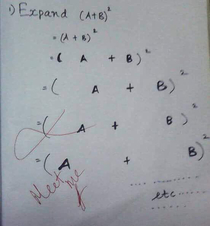 1) Expand (A+B)²
= (A + B)²
= ( A + B)²
= ( A + B)²
= ( A + B )²
= ( A + B)²
Meet me
..... etc .....